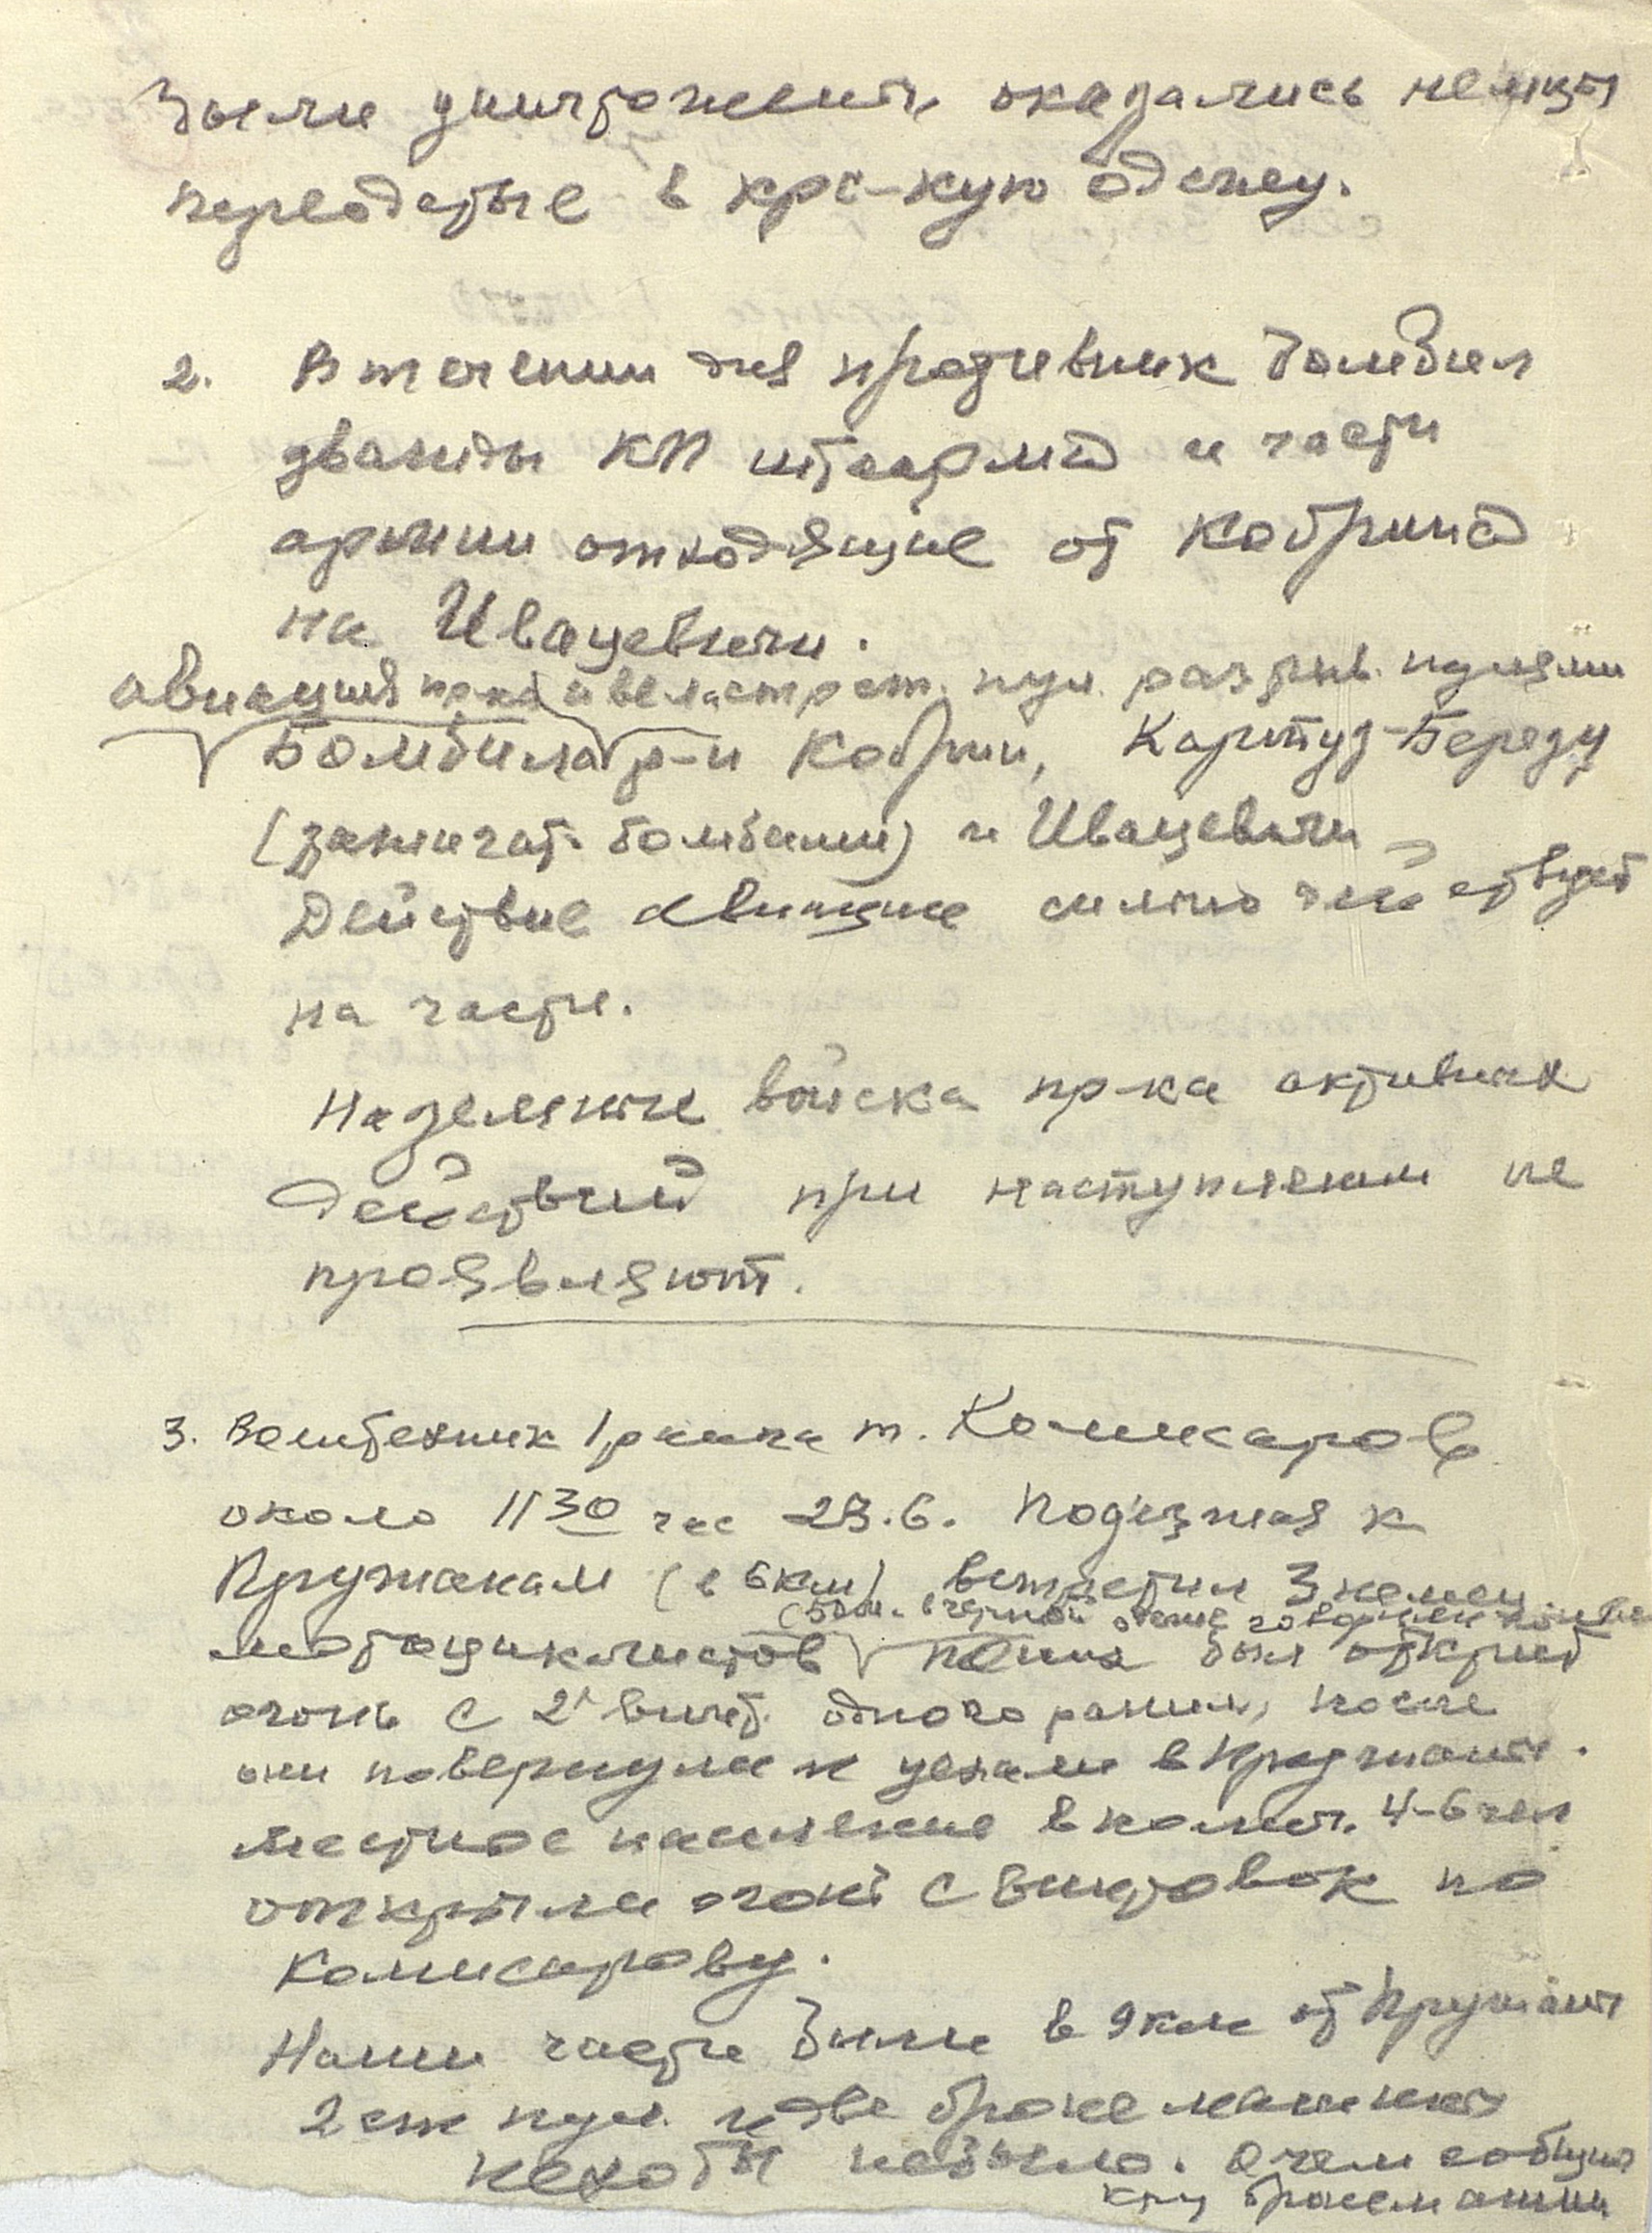 были уничтожены, оказались немцы
переодетые в крс-кую одежу.
2. В течении дня противник бомбил
дважды КП штаарма и части
армии отходящие от Кобрина
на Ивацевичи.
авиация пр-ка и вела обстрел. пул. разрыв. пулями
Бомбила р-н Кобрин, Картуз-Березу
(зажигат. бомбами) и Ивацевичи
Действие авиации сильно действует
на части.
Наземные войска пр-ка активных
действий при наступлении не
проявляют.
3. Воентехник 1 ранга т. Комисаров
около 11 30 час 23.6. Подезжая к
Пружанам (в 6 км) встретил 3 немец
(были в черной одежде
мотоциклистов по ним был открыт
огонь с 2х винт. одного ранил, после
они повернули и уехали в Пружаны.
Местное население в колич. 4-6 чел
открыли огонь с винтовок по
Комисарову.
Наши части были в 9 км от Пружаны
2 ст пул. и две броне машины
пехоты не было. О чем сообщил
к-ру бронемашин